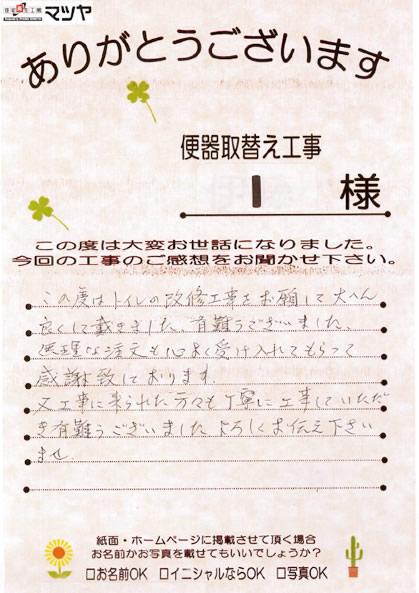 マツヤ
ありがとうございます
便器取替え工事
I 様
この度は大変お世話になりました。
今回の工事のご感想をお聞かせ下さい。
この度はトイレの改修工事をお願して大へん
良くして戴きました、有難うございました、
無理な注文も心よく受け入れてもらって
感謝致しております。
又工事に来られた方々も丁寧に工事していただ
き有難うございました よろしくお伝え下さい
ませ
紙面・ホームページに掲載させて頂く場合
お名前かお写真を載せてもいいでしょうか?
□お名前OK □イニシャルならOK □写真OK